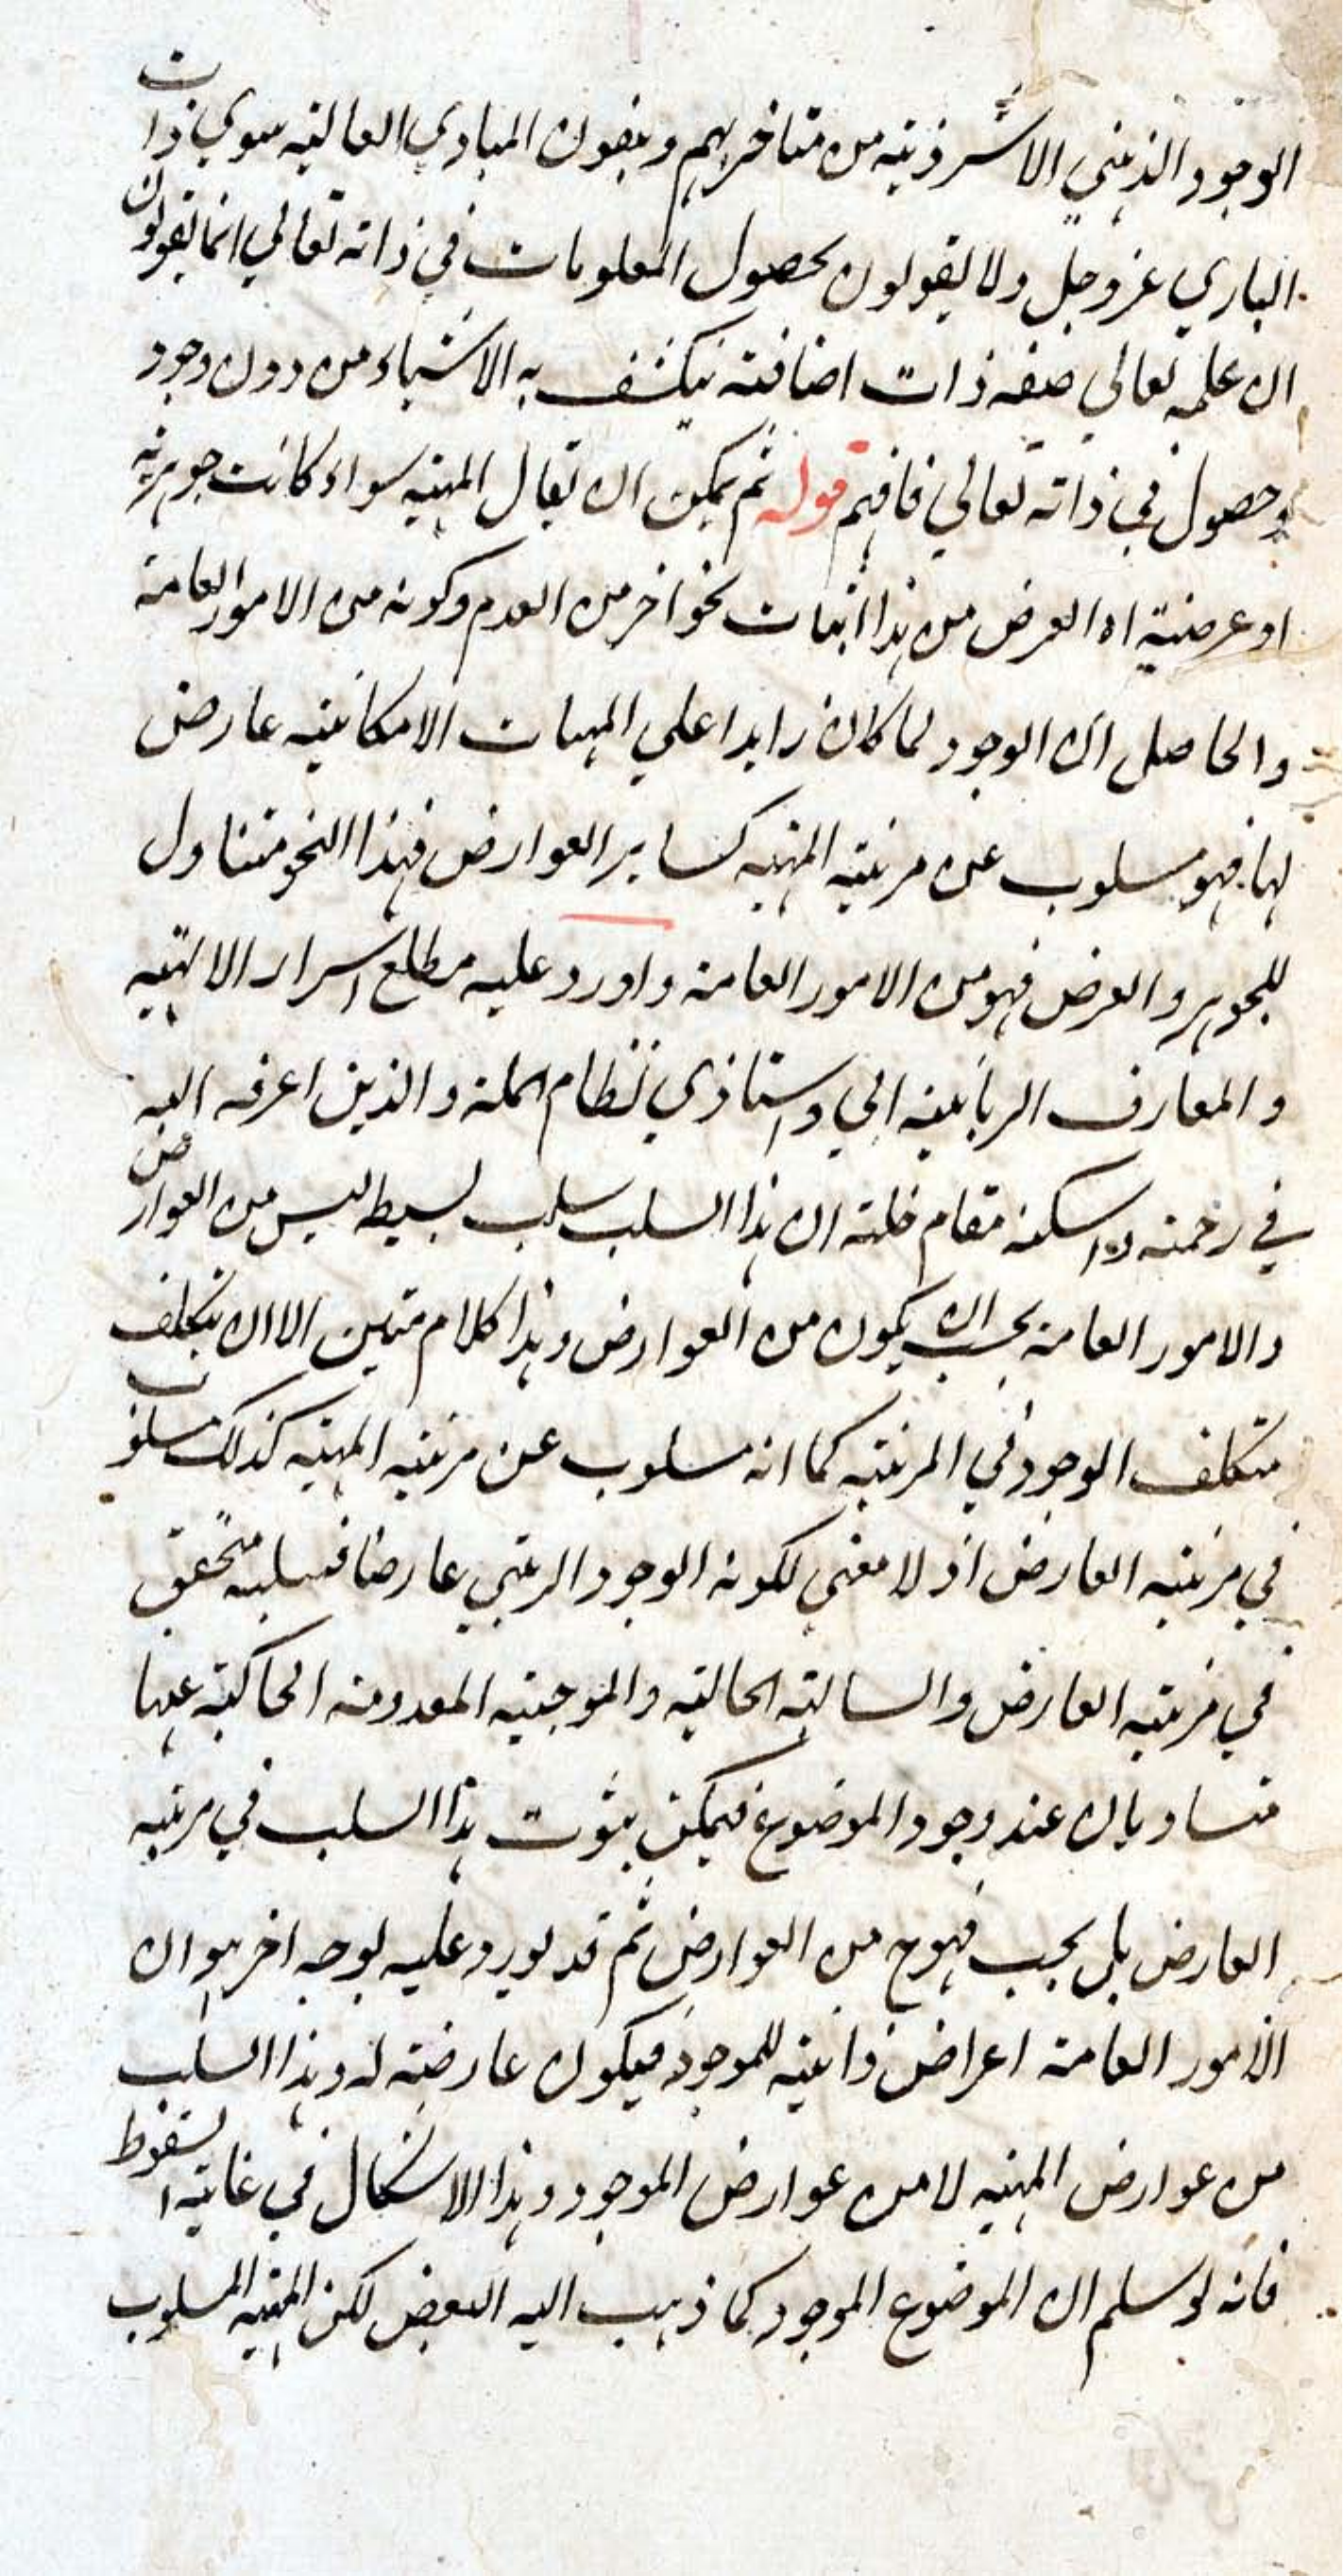 الوجود الذهني الا شر ذمة من متاخريهم وينفون المبادي العالية سوي ذات
الباري عز وجل ولا يقولون بحصول المعلومات في ذاته تعالي انما يقولون
ان علمه تعالي صفة ذات اضافة ينكشف به الاشياء من دون وجود
وحصول في ذاته تعالي فافهم قوله ثم يمكن ان يقال المهية سواء كانت جوهرية
او عرضية اه الغرض من هذا اثبات نحو اخر من العدم وكونه من الامور العامة
والحاصل ان الوجود لما كان زايدا علي المهيات الامكانية عارض
لها فهو مسلوب عن مرتبة المهية كساير العوارض فهذا النحو متناول
للجوهر والعرض فهو من الامور العامة واورد عليه مطلع اسرار الالهية
والمعارف الربانية ابي واستاذي نظام الملة والدين اعرفه الله
في رحمته واسكنه مقام خلته ان هذا السلب سلب بسيط ليس من العوارض
والامور العامة يجب ان يكون من العوارض وهذا كلام متين الا ان يتكلف
متكلف الوجود في المرتبة كما انه مسلوب عن مرتبة المهية كذلك مسلوب
في مرتبة العارض اذ لا معني لكونه الوجود المرتبي عارضا فسلبه متحقق
في مرتبة العارض والسالبة الحالية والموجبة المعدومة الحاكية عنها
متساويان عند وجود الموضوع فيمكن ثبوت هذا السلب في مرتبة
العارض بل يجب فهو ح من العوارض ثم قد يورد عليه بوجه اخر هو ان
الامور العامة اعراض ذاتية للموجود فيكون عارضة له وهذا السلب
من عوارض المهية لا من عوارض الموجود وهذا الاشكال في غاية السقوط
فانه لو سلم ان الموضوع الموجود كما ذهب اليه البعض لكن المهية المسلوب